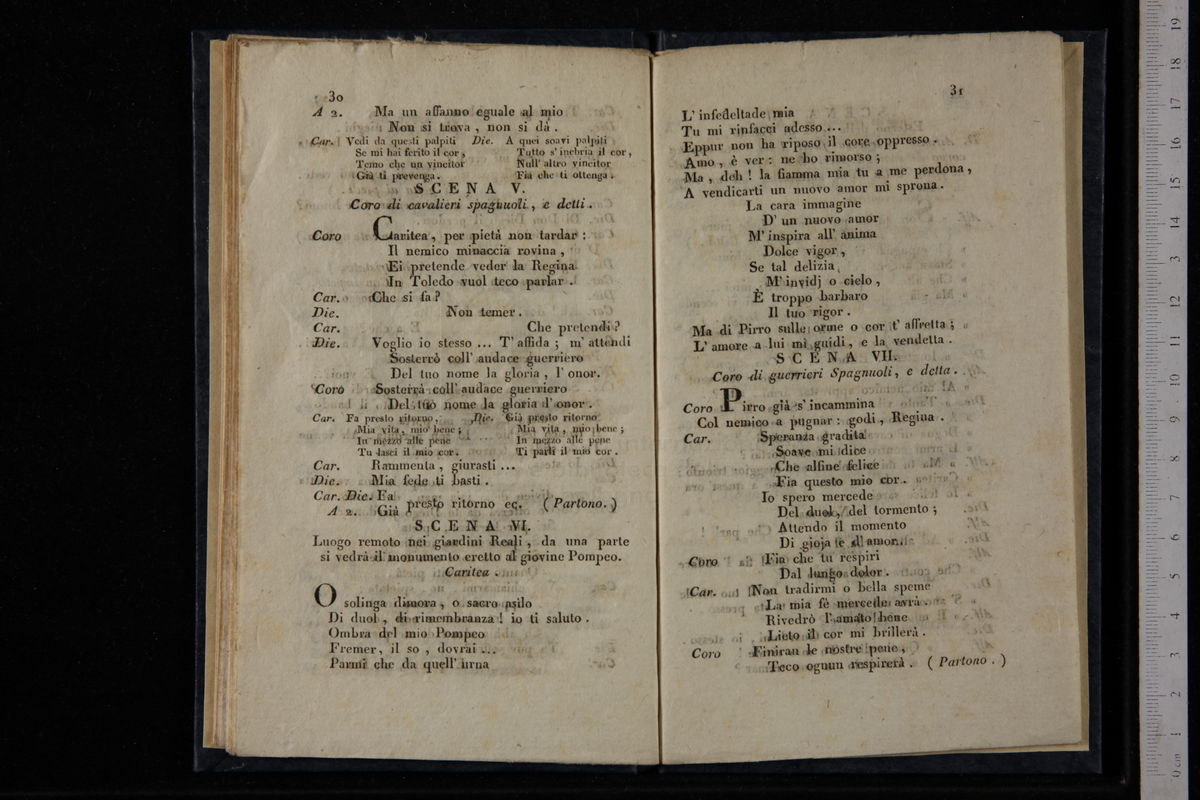 30
A 2. Ma un affanno eguale al mio
Non si trova, non si dà.
Car. Vedi da questi palpiti Die. A quei soavi palpiti
Se mi hai ferito il cor, Tutto s'inebria il cor,
Temo che un vincitor Null'altro vincitor
Già ti prevenga. Fia che ti ottenga.
SCENA V.
Coro di cavalieri spagnuoli, e detti.
Coro Caritea, per pietà non tardar:
Il nemico minaccia rovina,
Ei pretende veder la Regina
In Toledo vuol teco parlar.
Car. Che si fa?
Die. Non temer.
Car. Che pretendi?
Die. Voglio io stesso ... T'affida; m'attendi
Sosterrò coll'audace guerriero
Del tuo nome la gloria, l'onor.
Coro Sosterrà coll'audace guerriero
Del tuo nome la gloria l'onor.
Car. Fa presto ritorno, Die. Già presto ritorno
Mia vita, mio bene; Mia vita, mio bene;
In mezzo alle pene In mezzo alle pene
Tu lasci il mio cor. Ti parli il mio cor.
Car. Rammenta, giurasti ...
Die. Mia fede ti basti.
Car. Die. Fa
A 2. Già presto ritorno ec. (Partono.)
SCENA VI.
Luogo remoto nei giardini Reali, da una parte
si vedrà il monumento eretto al giovine Pompeo.
Caritea.
O solinga dimora, o sacro asilo
Di duol, di rimembranza! io ti saluto.
Ombra del mio Pompeo
Fremer, il so, dovrai ...
Parmi che da quell'urna
31
L'infedeltade mia
Tu mi rinfacci adesso ...
Eppur non ha riposo il core oppresso.
Amo, è ver: ne ho rimorso;
Ma, deh! la fiamma mia tu a me perdona,
A vendicarti un nuovo amor mi sprona.
La cara immagine
D'un nuovo amor
M'inspira all'anima
Dolce vigor,
Se tal delizia
M'invidj o cielo,
È troppo barbaro
Il tuo rigor.
Ma di Pirro sulle orme o cor t'affretta;
L'amore a lui mi guidi, e la vendetta.
SCENA VII.
Coro di guerrieri Spagnuoli, e detta.
Coro Pirro già s'incammina
Col nemico a pugnar: godi, Regina.
Car. Speranza gradita
Soave mi dice
Che alfine felice
Fia questo mio cor.
Io spero mercede
Del duol, del tormento;
Attendo il momento
Di gioja e d'amor.
Coro Fia che tu respiri
Dal lungo dolor.
Car. Non tradirmi o bella speme
La mia fè mercede avrà.
Rivedrò l'amato bene
Lieto il cor mi brillerà.
Coro Finiran le nostre pene,
Teco ognun respirerà. (Partono.)
0 cm 1 2 3 4 5 6 7 8 9 10 11 12 13 14 15 16 17 18 19